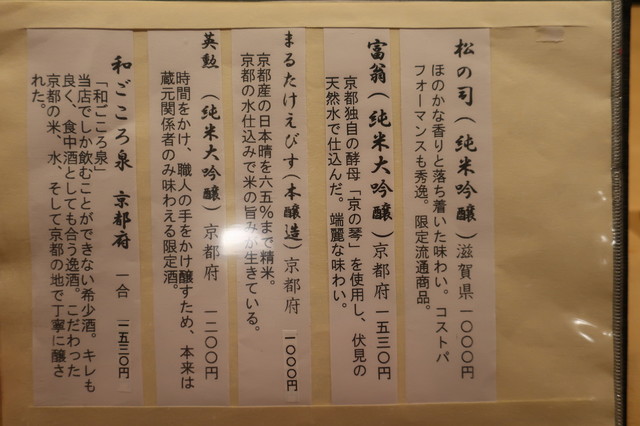 松の司（純米吟醸）滋賀県 一〇〇〇円
ほのかな香りと落ち着いた味わい。コストパ
フォーマンスも秀逸。限定流通商品。
富翁（純米大吟醸）京都府 一五三〇円
京都独自の酵母「京の琴」を使用し、伏見の
天然水で仕込んだ。端麗な味わい。
まるたけえびす（本醸造）京都府 一〇〇〇円
京都産の日本晴を六五％まで精米。
京都の水仕込みで米の旨みが生きている。
英勲（純米大吟醸）京都府 一二〇〇円
時間をかけ、職人の手をかけ醸すため、本来は
蔵元関係者のみ味わえる限定酒。
和ごころ泉 京都府 一合 一五三〇円
「和ごころ泉」
当店でしか飲むことができない希少酒。キレも
良く、食中酒としても合う逸酒。こだわった
京都の米、水、そして京都の地で丁寧に醸さ
れた。